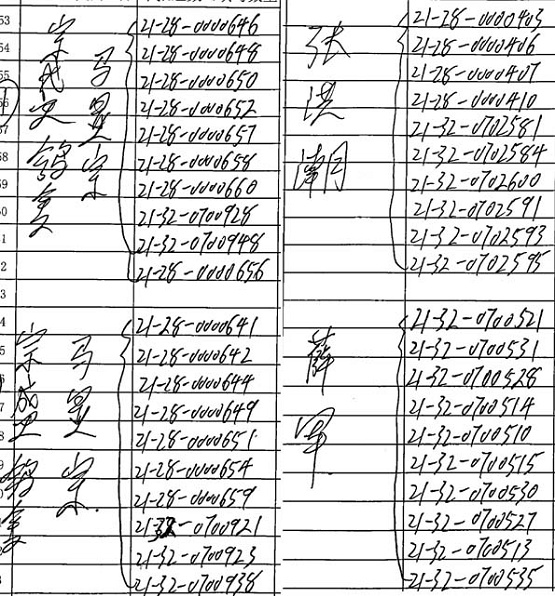 21-28-0000646
21-28-0000648
21-28-0000650
21-28-0000652
21-28-0000657
21-28-0000658
21-28-0000660
21-32-0700928
21-32-0700948
21-28-0000656
21-28-0000641
21-28-0000642
21-28-0000644
21-28-0000649
21-28-0000651
21-28-0000654
21-28-0000659
21-32-0700921
21-32-0700923
21-32-0700938
张
21-28-0000403
21-28-0000406
21-28-0000407
21-28-0000410
21-32-0702581
21-32-0702584
21-32-0702600
21-32-0702591
21-32-0702593
21-32-0702595
薛
军
21-32-0700521
21-32-0700531
21-32-0700528
21-32-0700514
21-32-0700510
21-32-0700515
21-32-0700530
21-32-0700527
21-32-0700513
21-32-0700535